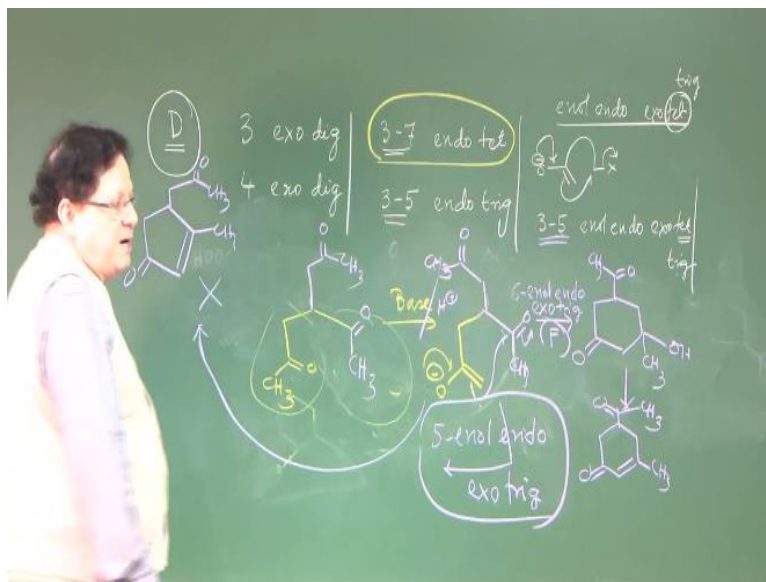 D
3 exo dig
4 exo dig
3-7 endo tet
3-5 endo trig
trig
enol endo exo tet
⊖ X
3-5 enol endo exo tet
trig
O
CH3
CH3
O
X
O
CH3
O
CH3
O
CH3
Base
O
CH3
H⊕
O
CH3
⊖
O
6-enol endo
exo trig
(F)
CH3
O
O
OH
CH3
O
CH3
O
CH3
5-enol endo
exo trig